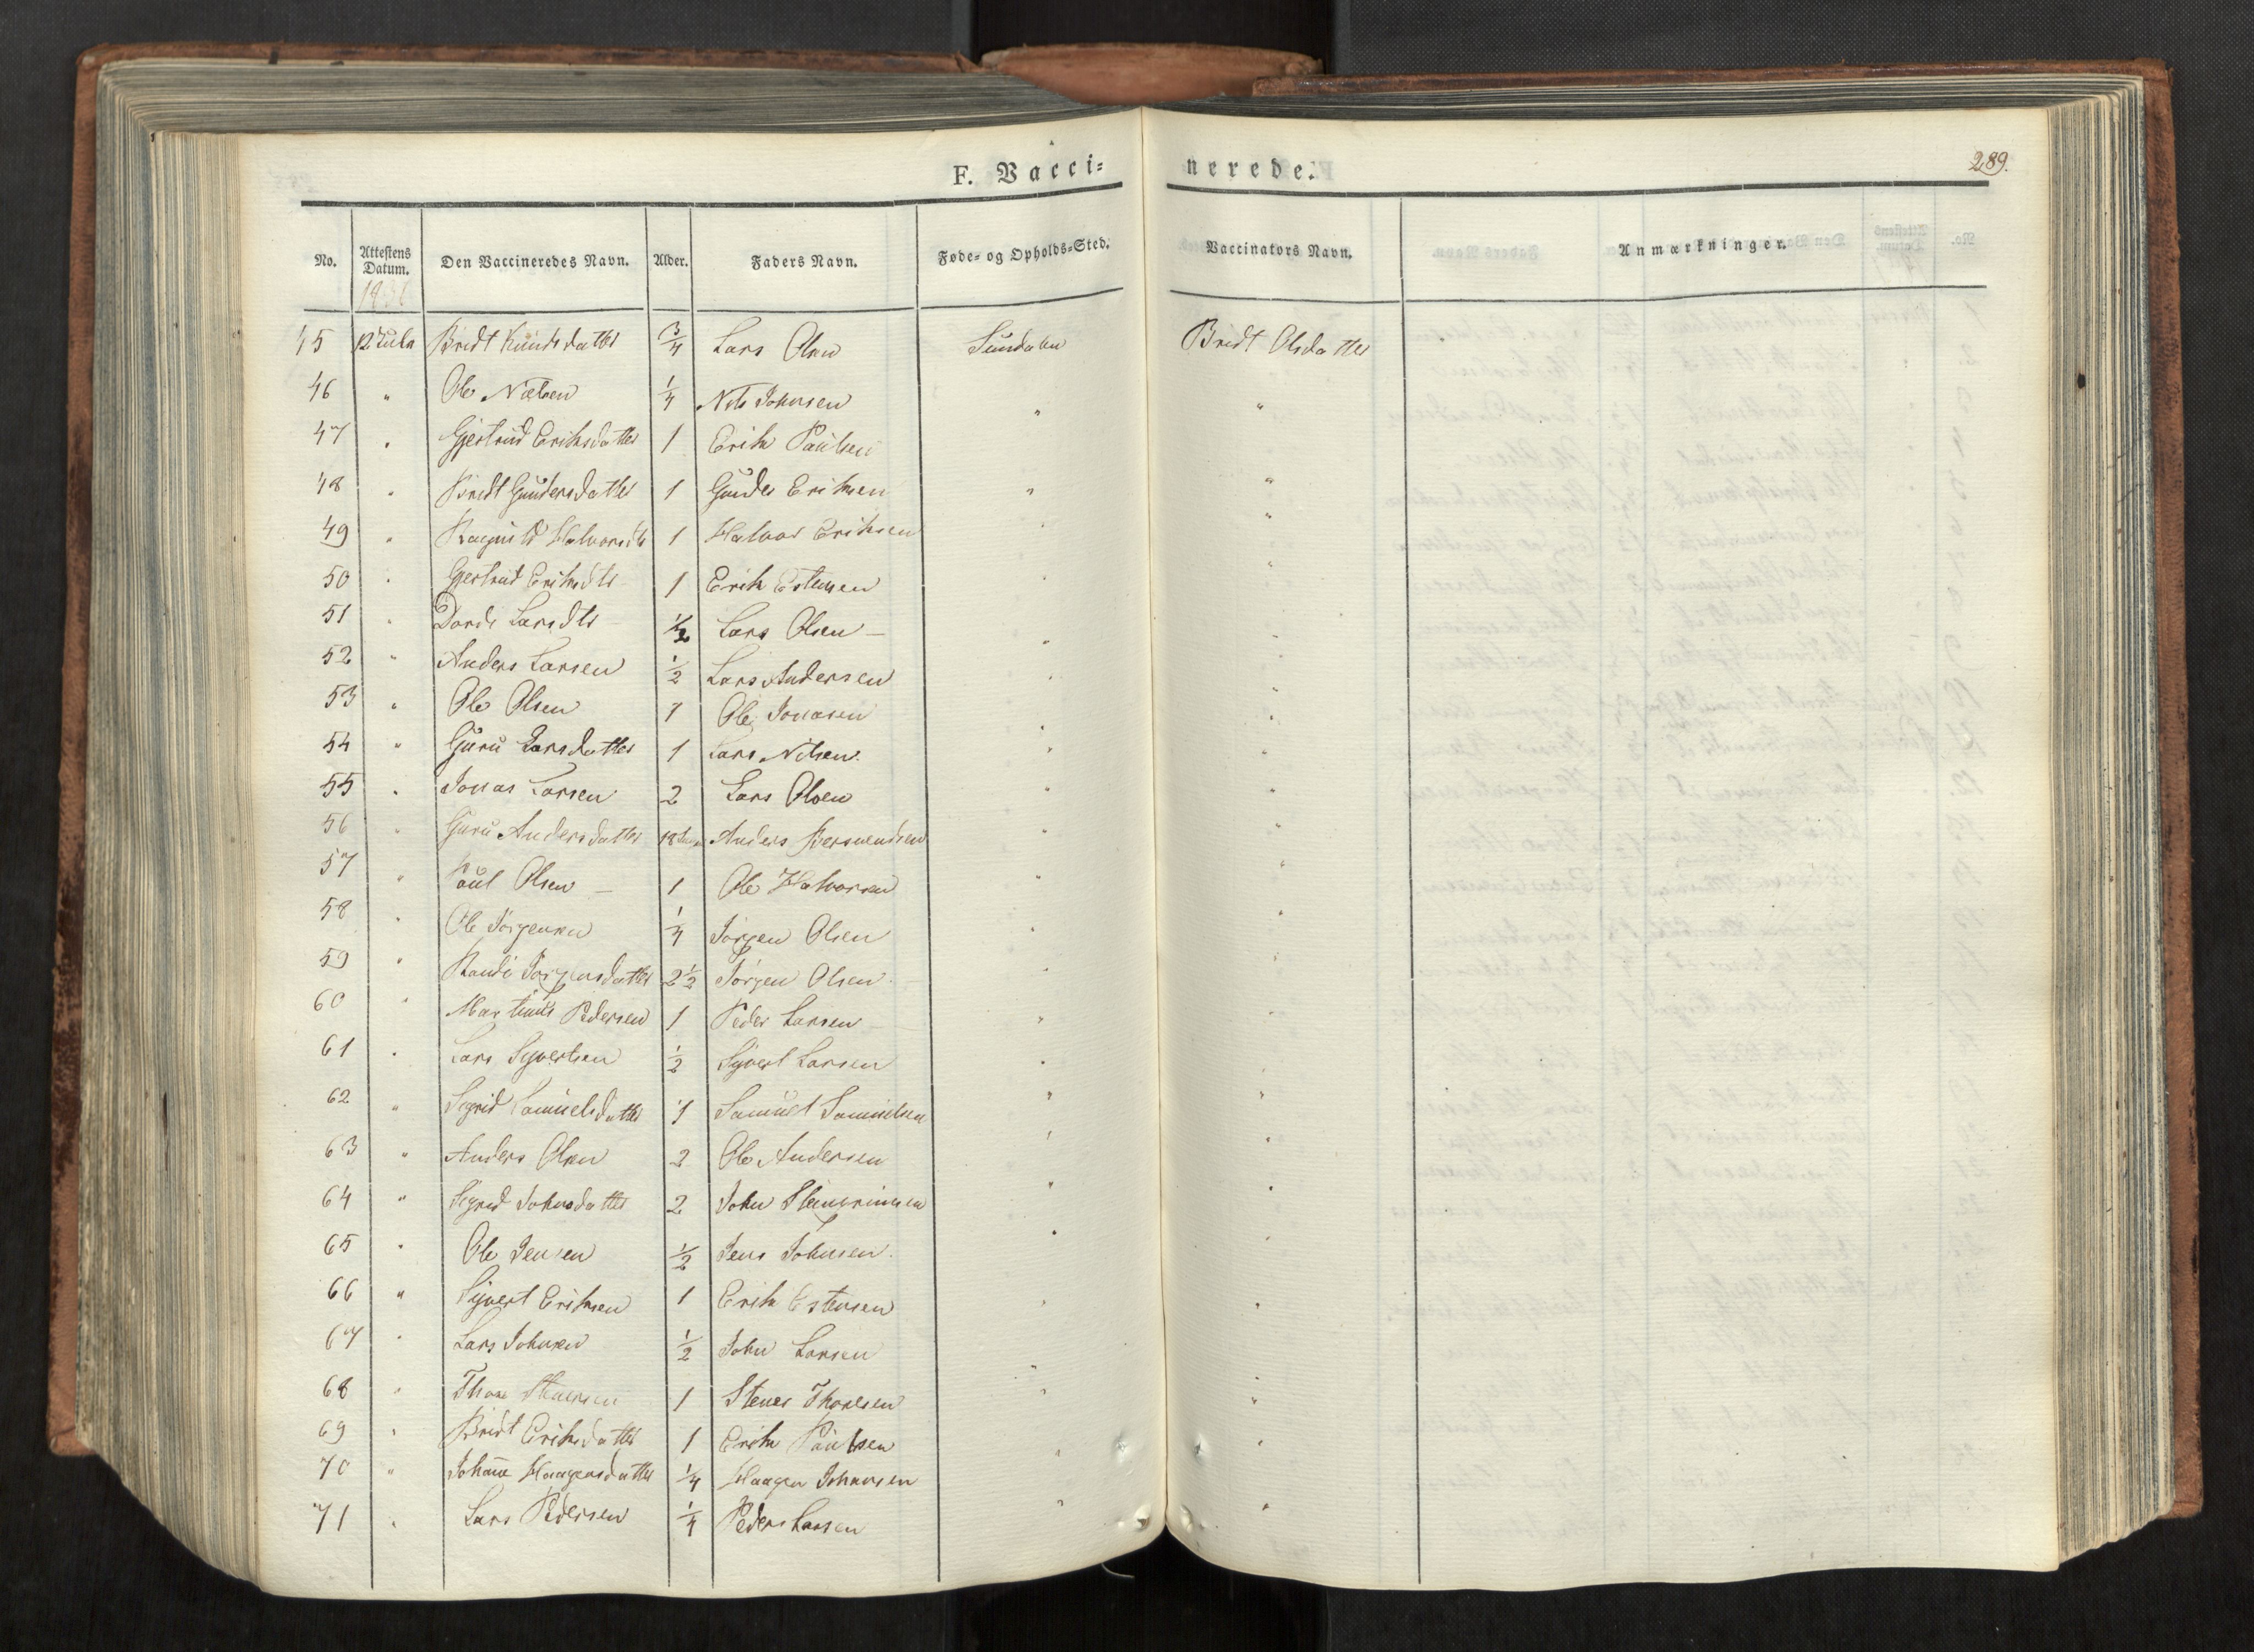 F. Vacci= nerede. 289.
No. Attestens Datum. Den Vaccineredes Navn. Alder. Faders Navn. Føde= og Opholds=Sted. Vaccinators Navn. Anmærkninger.
1836
45 12 Jula Bridt Knudsdatter 3/4 Lars Olsen Sundalen Bridt Olsdatter
46 " Ole Nielsen 1/4 Nils Johnsen " "
47 " Gjertrud Eriksdatter 1 Erik Paulsen
48 " Bridt Gundersdatter 1 Gunder Eriksen " "
49 " Ragnild Halvorsdtr 1 Halvor Eriksen " "
50 " Gjertrud Eriksdtr 1 Erik Estensen " "
51 " Dordi Larsdtr 1/2 Lars Olsen
52 " Anders Larsen 1/2 Lars Andersen " "
53 " Ole Olsen 1 Ole Jonasen " "
54 " Guru Larsdatter 1 Lars Nilsen. " "
55 " Jonas Larsen 2 Lars Olsen " "
56 " Guru Andersdatter Anders Bersvendsen " "
57 " Paul Olsen 1 Ole Halvorsen " "
58 " Ole Jørgensen 1/4 Jørgen Olsen " "
59 " Randi Jørgensdatter 2 1/2 Jørgen Olsen " "
60 " Martinus Pedersen 1 Peder Larsen " "
61 " Lars Syvertsen 1/2 Syvert Larsen "
62 " Sigrid Samuelsdatter 1 Samuel Samuelsen " "
63 " Anders Olsen 2 Ole Andersen " "
64 " Sigrid Johnsdatter 2 John " "
65 " Ole Jensen 1/2 Jens Johnsen. " "
66 " Syvert Eriksen 1 Erik Estensen " "
67 " Lars Johnsen 1/2 John Larsen
68 " Thore Stenersen 1 Stener Thoresen " "
69 " Bridt Eriksdatter 1 Erik Paulsen " "
70 " Johanne Haagensdatter 1/4 Haagen Johansen " "
71 " Lars Pedersen 1/4 Peder Larsen " "